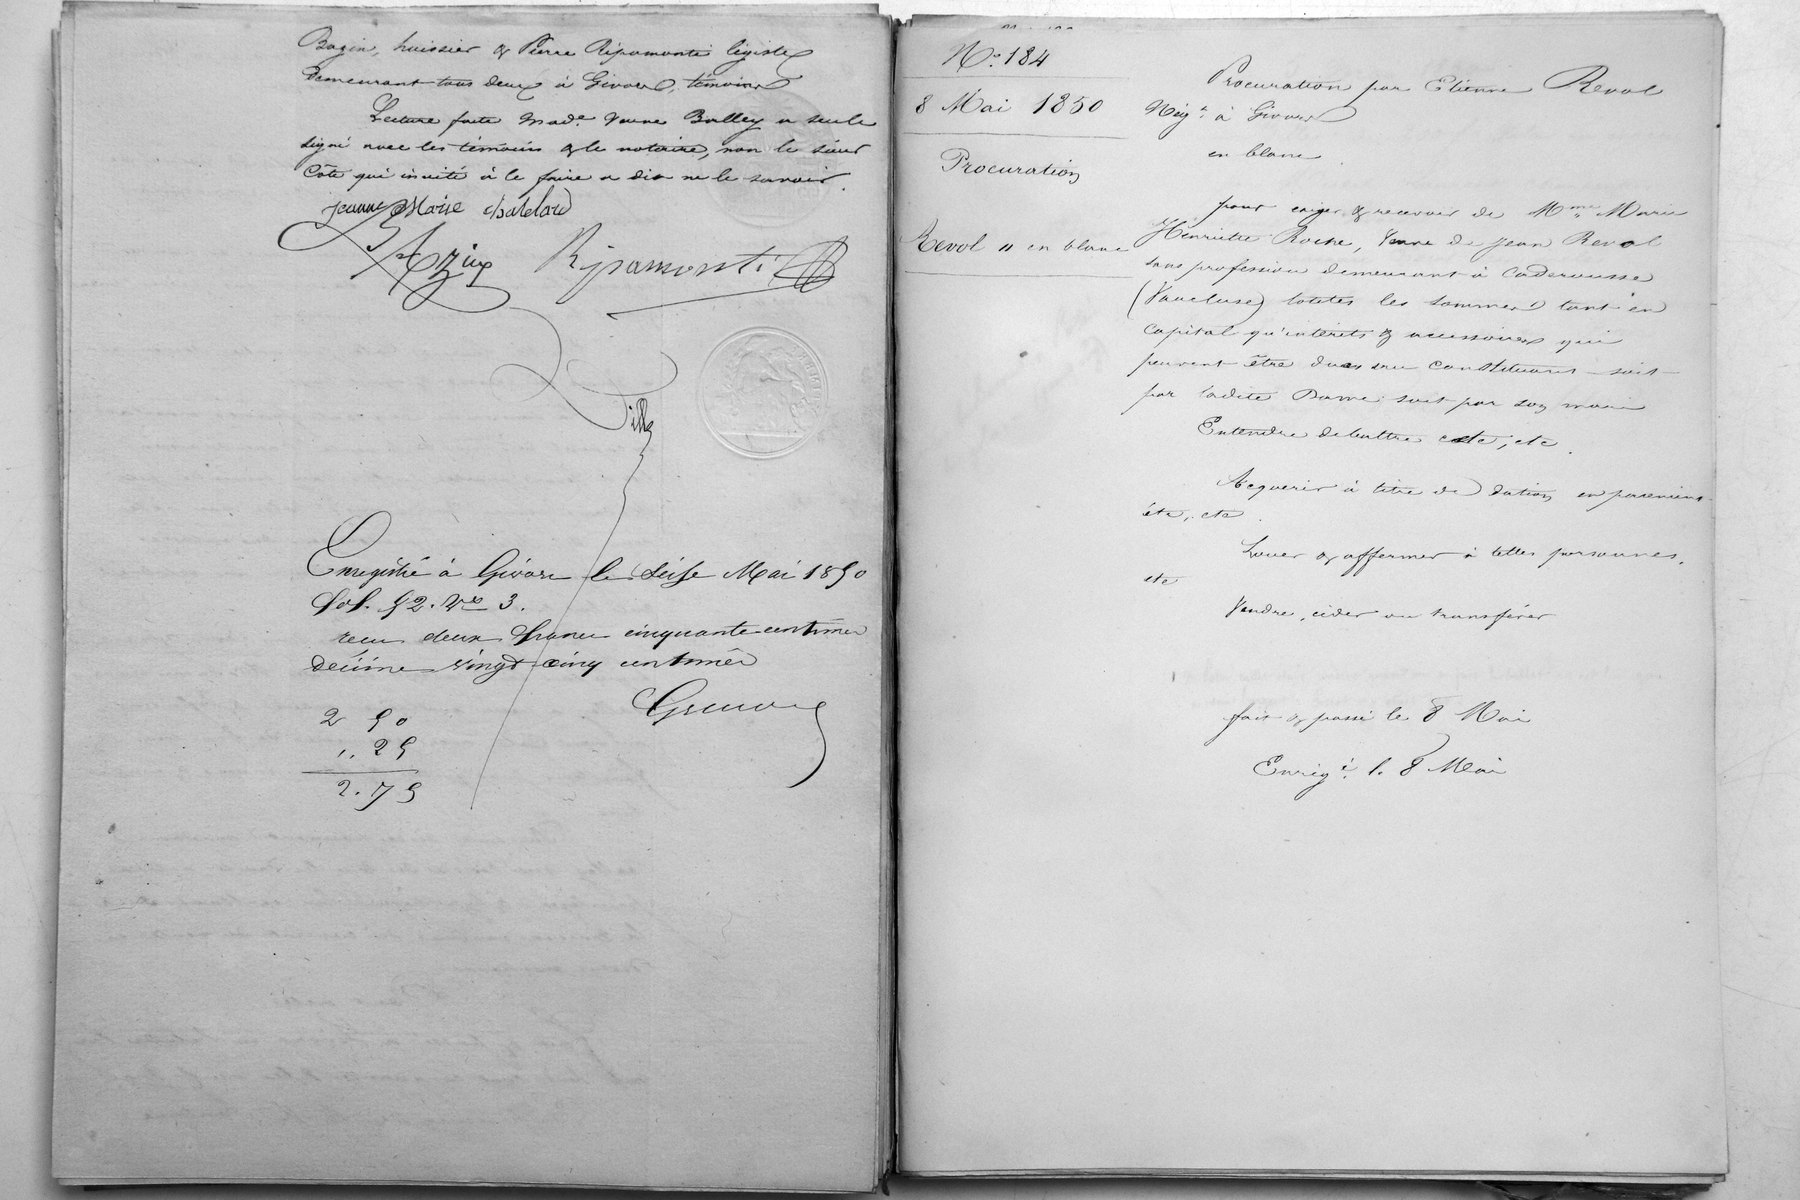 Bazin, huissier & Pierre Ripamonti légiste
demeurant tous deux à Givors, témoins
Lecture faite Made. Veuve Balley a seule
signé avec les témoins & le notaire, non le sieur
Côte qui invité à le faire a dit ne le savoir.
Jeanne Marie
Bazin Ripamonti
Enregistré à Givors le Seise Mai 1850
fol. 52. Vo 3.
reçu deux francs cinquante centimes
décime vingt cinq centimes
2 50
,, 25
2.75
No. 184
8 Mai 1850
Procuration
Revol " en blanc
Procuration par Etienne Revol
Négt. à Givors
en blanc.
pour exiger & recevoir de Mme. Marie
Henriette Roche, Veuve de Jean Revol
sans profession demeurant à Caderousse
(Vaucluse) toutes les sommes tant en
capital qu'intérêts & accessoires qui
peuvent être dues au constituant soit
par ladite Dame soit par son mari
Entendre débattre etc, etc.
Acquérir à titre de dation en paiement
etc, etc.
Louer & affermer à telles personnes.
etc
Vendre, céder ou transférer
fait & passé le 8 Mai
Enrigé. l. 8 Mai